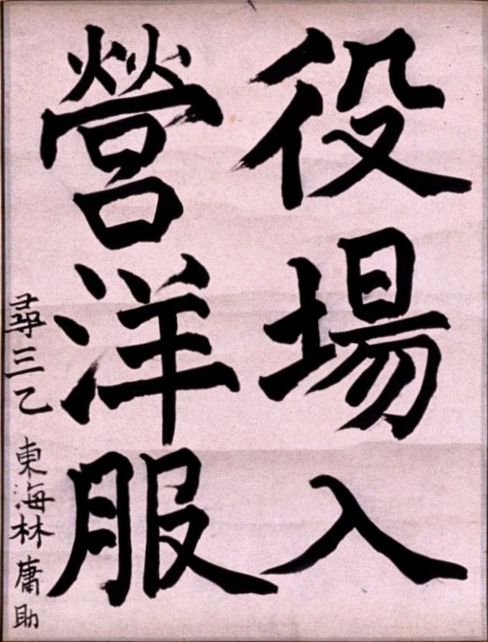 役場入
營洋服
尋三乙 東海林庸助